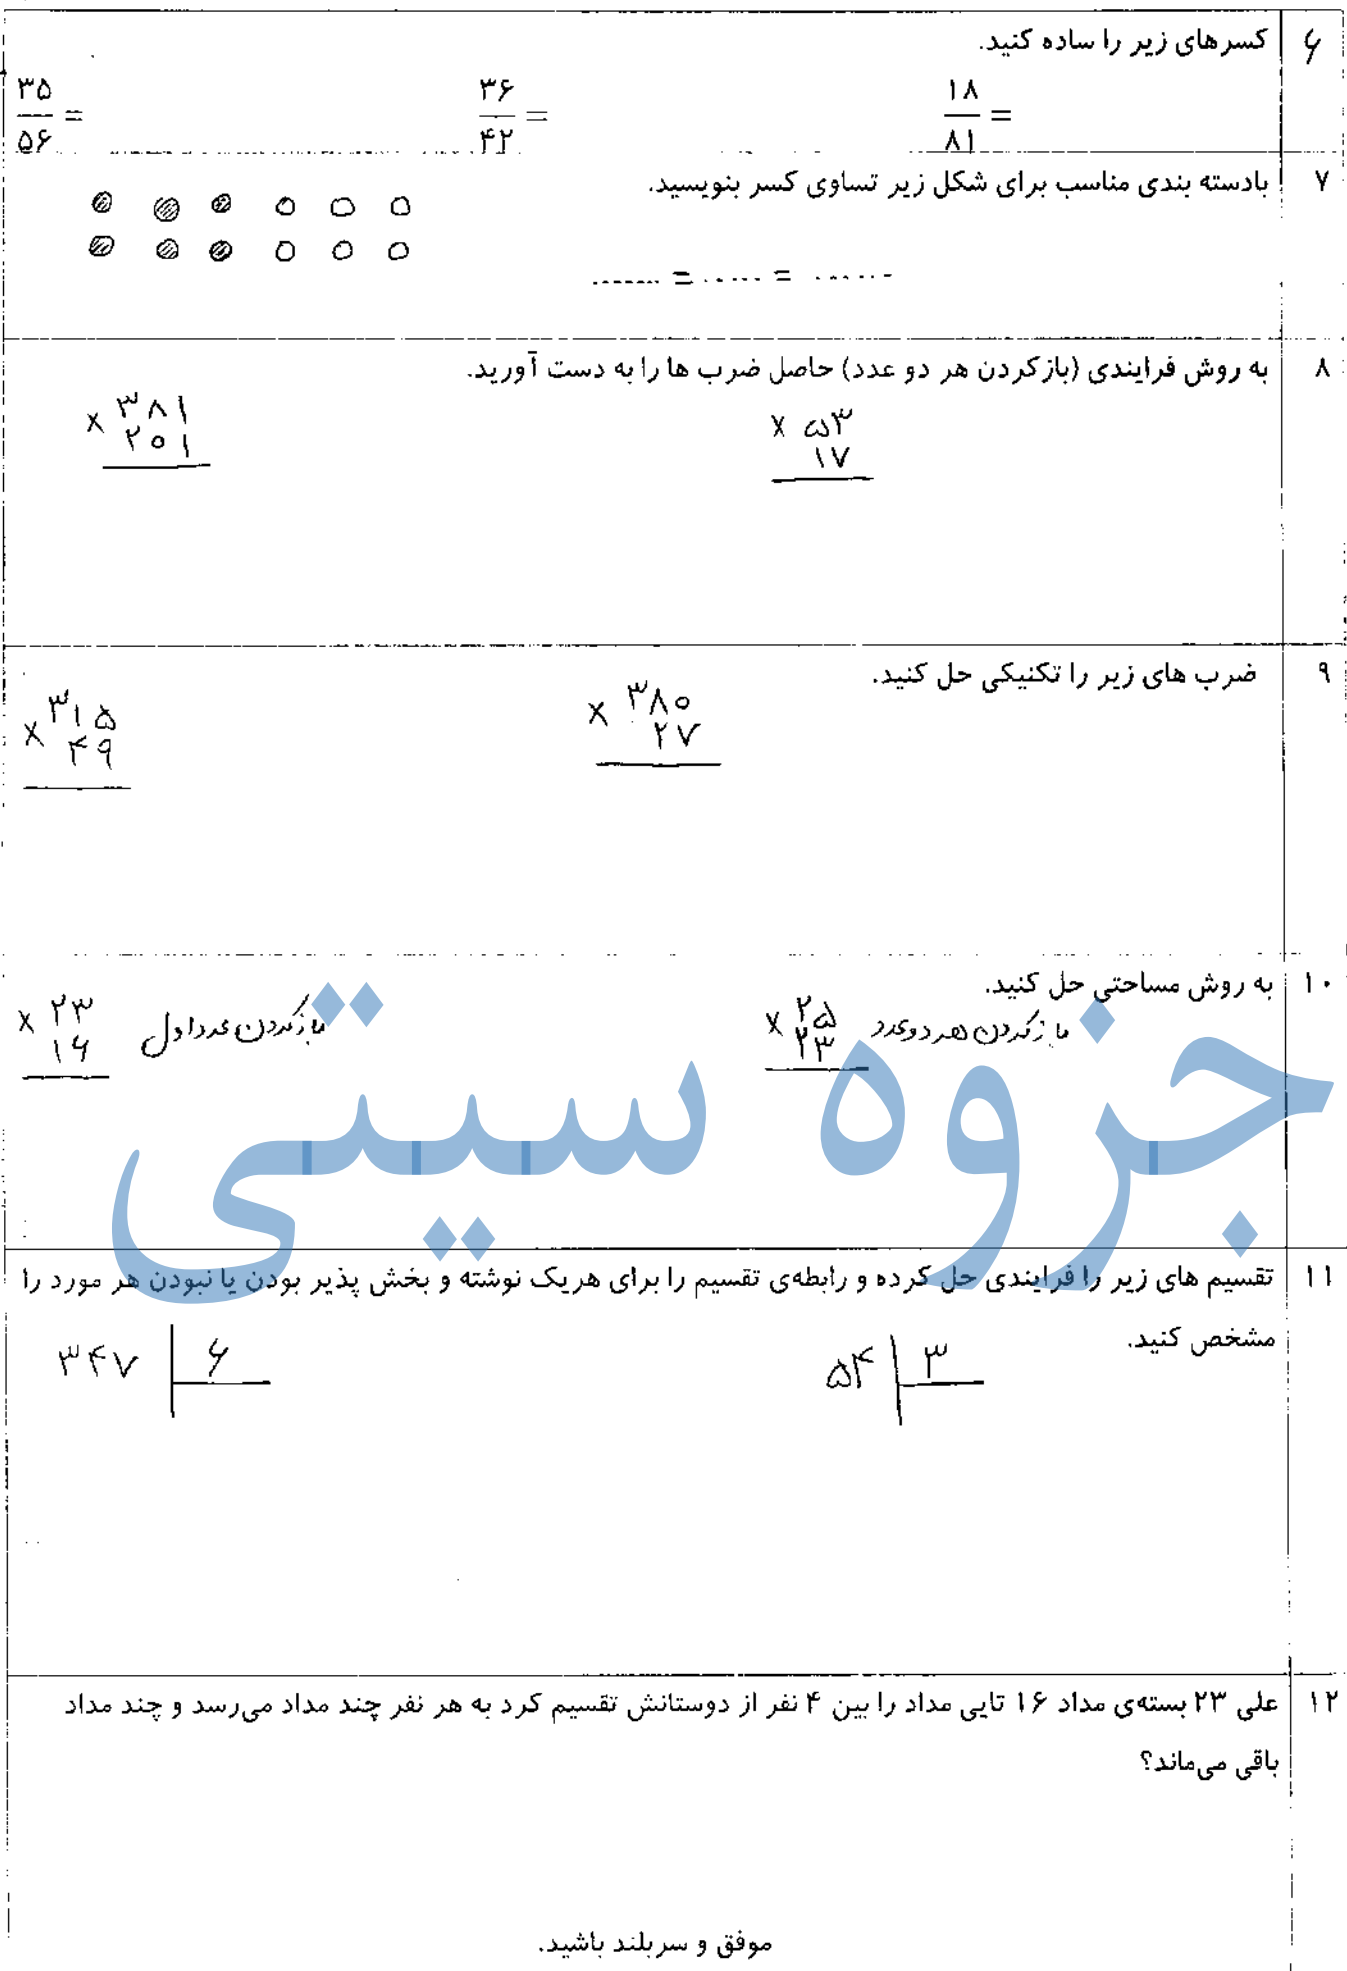 ۶ کسرهای زیر را ساده کنید.
۱۸/۸۱ = ۳۶/۴۲ = ۳۵/۵۶ =
۷ بادسته بندی مناسب برای شکل زیر تساوی کسر بنویسید.
....... = ...... = .......
۸ به روش فرایندی (بازکردن هر دو عدد) حاصل ضرب ها را به دست آورید.
× ۵۳ × ۳۸۱
۱۷ ۲۰۱
۹ ضرب های زیر را تکنیکی حل کنید.
× ۳۸۰ × ۳۱۵
۲۷ ۴۹
۱۰ به روش مساحتی حل کنید.
باز کردن هر دو عدد × ۲۵ باز کردن عدد اول × ۲۳
۲۳ ۱۶
جزوه سیتی
۱۱ تقسیم های زیر را فرایندی حل کرده و رابطه‌ی تقسیم را برای هریک نوشته و بخش پذیر بودن یا نبودن هر مورد را
مشخص کنید.
۵۴ | ۳ ۳۴۷ | ۶
۱۲ علی ۲۳ بسته‌ی مداد ۱۶ تایی مداد را بین ۴ نفر از دوستانش تقسیم کرد به هر نفر چند مداد می‌رسد و چند مداد
باقی می‌ماند؟
موفق و سربلند باشید.